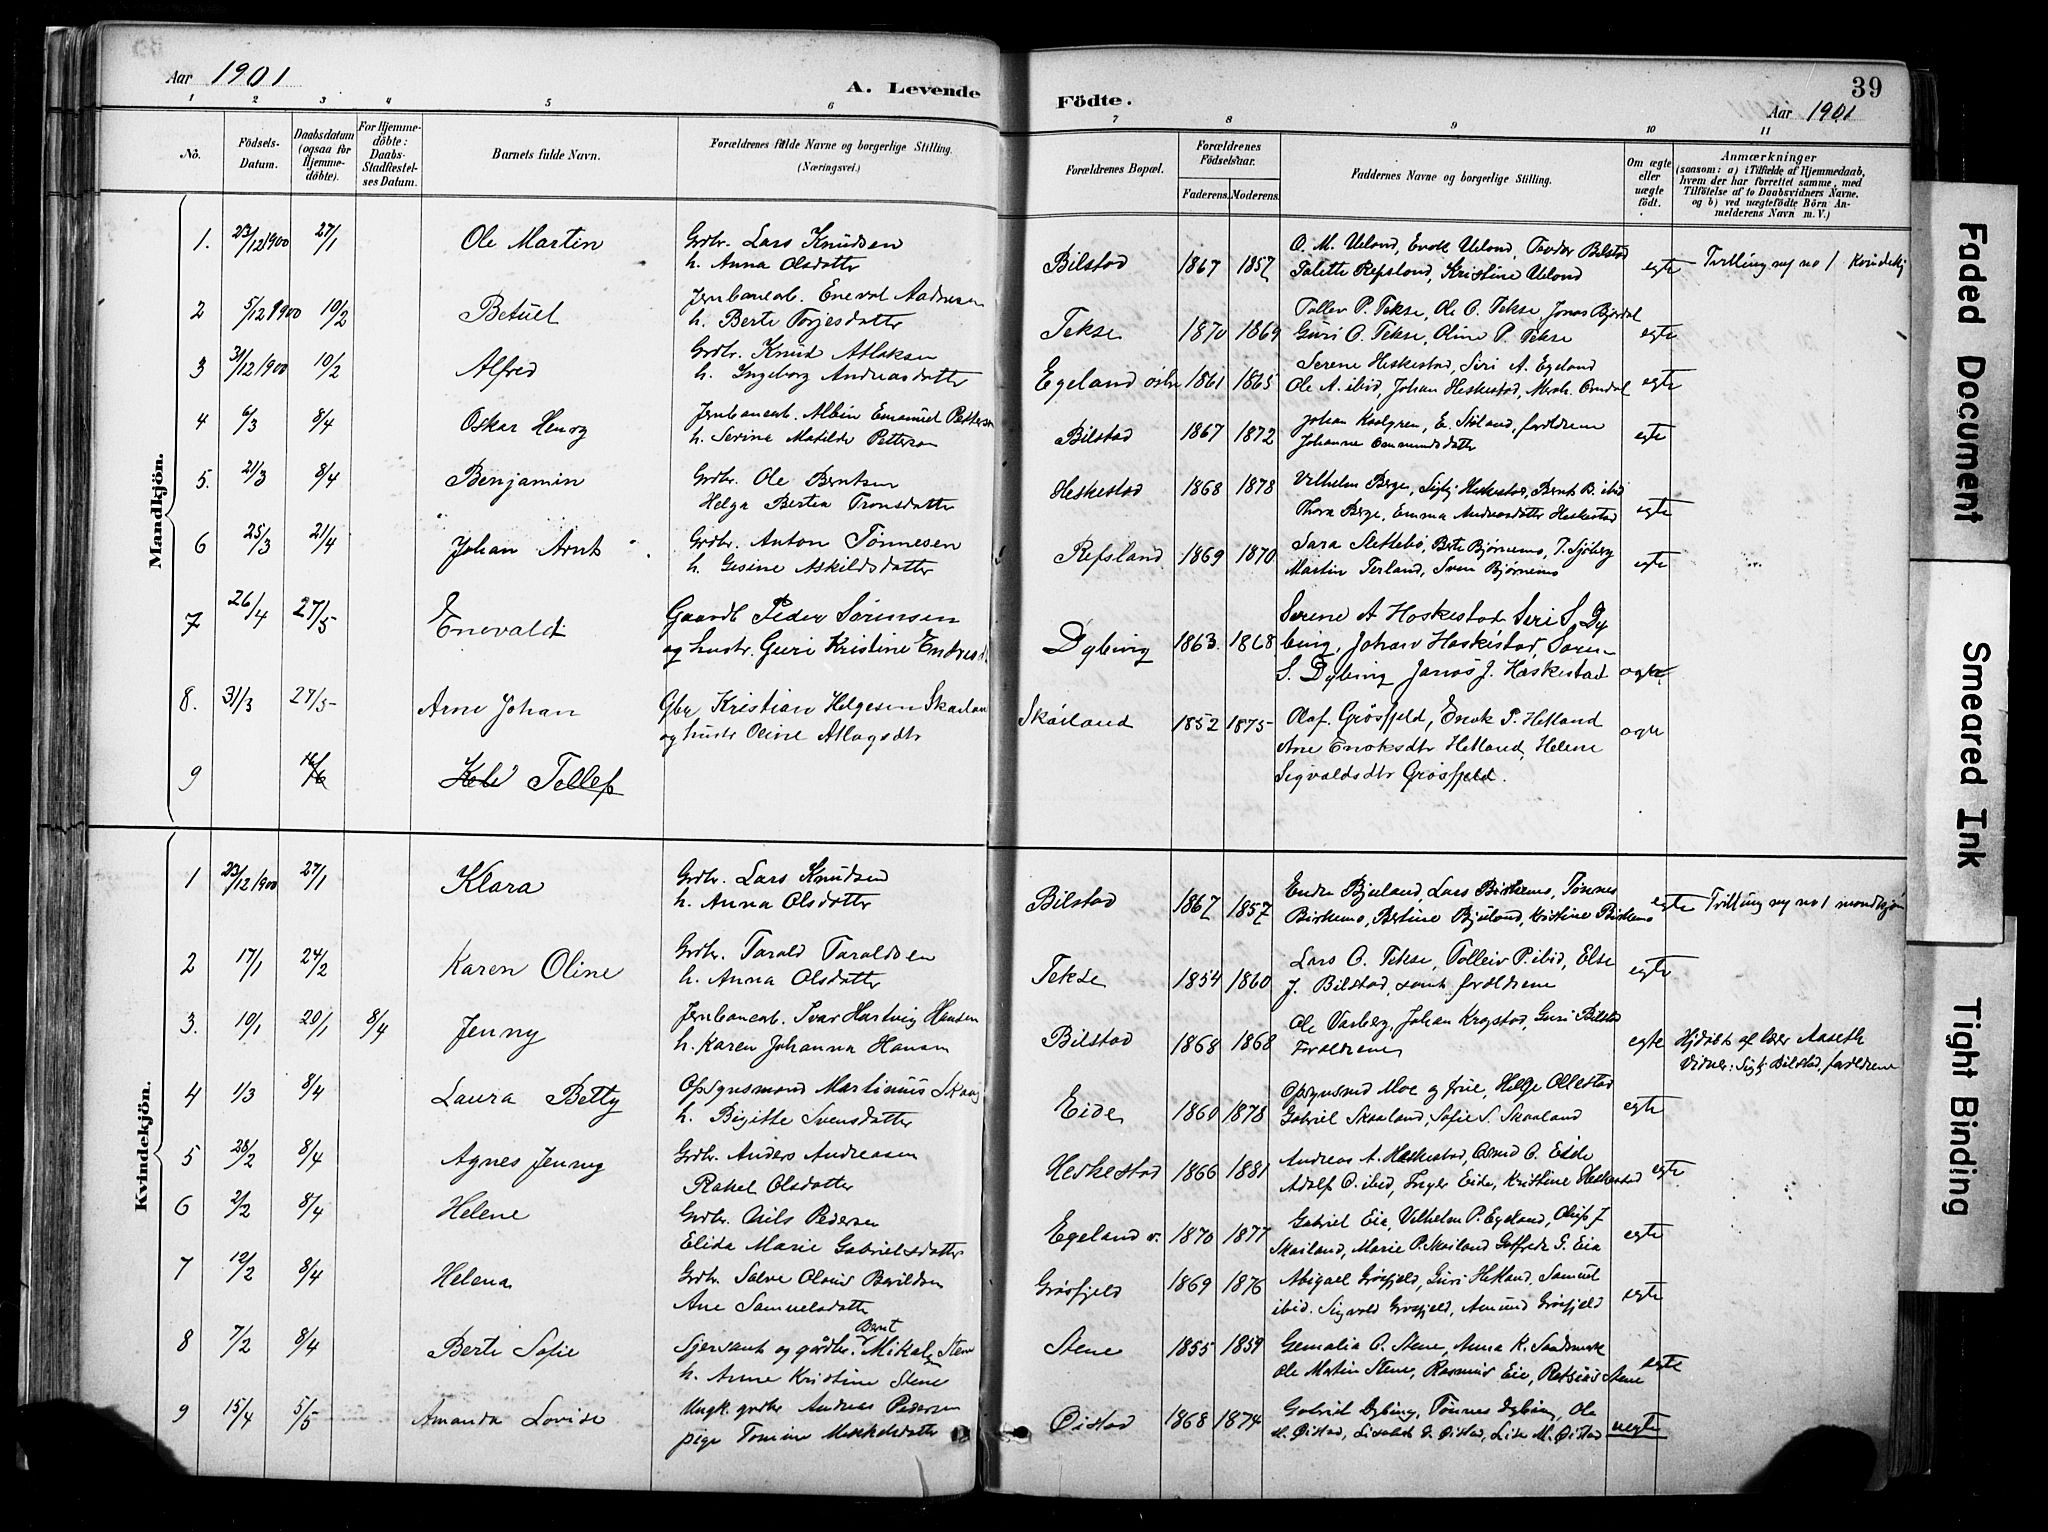 Aar 1901
A. Levende
Födte.
39
Aar 1901
1 2 3 4 5 6 7 8 9 10 11
No.
Födsels-
Datum.
Daabsdatum
(ogsaa for
Hjemme-
döbte).
For Hjemme-
döbte:
Daabs-
Stadfæstel-
ses Datum.
Barnets fulde Navn.
Forældrenes fulde Navne og borgerlige Stilling.
(Næringsvei.)
Forældrenes Bopæl.
Forældrenes
Födselsaar.
Faderens. Moderens.
Faddernes Navne og borgerlige Stilling.
Om ægte
eller
uægte
födt.
Anmærkninger
(saasom: a) i Tilfælde af Hjemmedaab,
hvem der har forrettet samme, med
Tilföielse af to Daabsvidners Navne.
og b) ved uægtefödte Börn An-
melderens Navn m. V.)
Mandkjön.
1. 23/12 1900 27/1 Ole Martin Grdbr. Lars Knudsen
h. Anna Olsdatter
Bilstad 1867 1857 O. M. Ueland, Enok Ueland, Tordor Bilstad
Talette Refsland, Kristine Ueland
egte Tvilling mg no 1 Kvindekj
2 5/12 1900 10/2 Betuel Jernbanearb. Enevol Aadnesen
h. Berte Torjesdatter
Tekse 1870 1869 Tollev P. Tekse, Ole O. Tekse, Jonas Bjordal
Guri O. Tekse, Oline P. Tekse egte
3 31/12 1900 10/2 Alfred Grdbr. Knud Atlaksen
h. Ingeborg Andreasdatter
Egeland ostre 1861 1865 Serene Heskestad, Siri A. Egeland
Ole A. ibid, Johan Heskestad, Omdal egte
4 6/3 8/4 Oskar Henry Jernbanearb. Albin Emanuel Petterson
h. Serine Matilde Petterson
Bilstad 1867 1872 Johan Karlgren, E. Skiland, foreldrene
Johanne Emmundsdatter egte
5. 21/3 8/4 Benjamin Grdbr. Ole Berntsen
Helga Bertea Tronsdatter
Heskestad 1868 1878 Vilhelm Berge, Sigbj Heskestad, Bernt B. ibid
Thora Berge, Emma Andreasdatter Heskestad egte
6 25/3 21/4 Johan Arnt Grdbr. Anton Tønnesen
h. Gesine Askildsdatter
Refsland 1869 1870 Sara Slettebø, Berte Bjørnemo, T. Sjøberg
Martin Terland, Sven Bjørnemo egte
7 26/4 27/5 Enevald Gaardb Peder Sørensen
og hustr. Guri Kristine Endresd.
Dybing 1863. 1868 Serene A Heskestad Seri S. Dy
bing, Johan Heskestad, Soren
S. Dybing Jonas J. Heskestad egte
8. 31/3 27/5 Arne Johan Gbr Kristian Helgesen Skailan
og hustr Oline Atlagsdtr
Skailand 1852 1875 Olaf Grøsfjeld, Enok P. Hetland
Ane Enoksdtr Hetland, Helene
Sigvaldsdtr Grøsfjeld. egte
9 16/6 Tollef
Kvindekjön.
1 23/12 1900 27/1 Klara Grdbr. Lars Knudsen
h. Anna Olsdatter
Bilstad 1867 1857 Endre Bjuland, Lars Birkemo, Tønnes
Birkemo, Bertine Bjuland, Kristine Birkemo
egte Tvilling mg no 1 mandkjøn
2 17/1 24/2 Karen Oline Grdbr. Tarald Taraldsen
h. Anna Olsdatter
Tekse 1854 1860 Lars O. Tekse, Tolleiv P. ibid, Else
J. Bilstad, samt foreldrene egte
3. 10/1 20/1 8/4 Jenny Jernbanearb. Ivar Hartvig Hansen
h. Karen Johanna Hansen
Bilstad 1868 1868 Ole Varberg, Johan Krogstad, Guri Bilstad
Foreldrene
egte Hjdøbt af lær Aaseth
Vidner: Sigbj Bilstad, foreldrene
4 1/3 8/4 Laura Betty Opsynsmand Martinius Skaaj
h. Birgitte Svensdatter
Eide 1860 1878 Opsynsmd Moe og frue, Helge Ollestad
Gabriel Skaaland, Sofie S. Skaaland egte
5 28/2 8/4 Agnes Jenny Grdbr. Anders Andreasen
Rakel Olsdatter
Heskestad 1866 1881 Andreas A. Heskestad, Omund O. Eide
Adolf O. ibid, Inger Eide, Kristine Heskestad egte
6 2/2 8/4 Helene Grdbr. Nils Pedersen
Elida Marie Gabrielsdatter
Egeland v. 1870 1877 Gabriel Eia, Vilhelm P. Egeland, Oluf J
Skailand, Marie P. Skailand Gotfrede G. Eia egte
7 12/2 8/4 Helena Grdbr. Salve Olaus Bovildsen
Ane Samuelsdatter
Grøsfjeld 1869 1876 Abigael Grøsfjeld, Guri Hetland, Samuel
ibid. Sigvald Grøsfjeld, Amund Grøsfjeld egte
8 7/2 8/4 Berte Sofie Sjersant og gårdbr. Bernt Mikal Stene
h. Anne Kristine Stene
Stene 1855 1859 Gemalia O. Stene, Anna K. Sandsmark
Ole Martin Stene, Rasmus Eie, Stene egte
9 15/4 5/5 Amanda Lovise Ungk. grdbr Andreas Pedersen
pige Tomine Mikkelsdatter
Øistad 1868 1874 Gabriel Dybing, Tønnes Dybing, Ole
M. Øistad, Lisabet G. Øistad, Lise M. Øistad uegte
Faded Document
Smeared Ink
Tight Binding